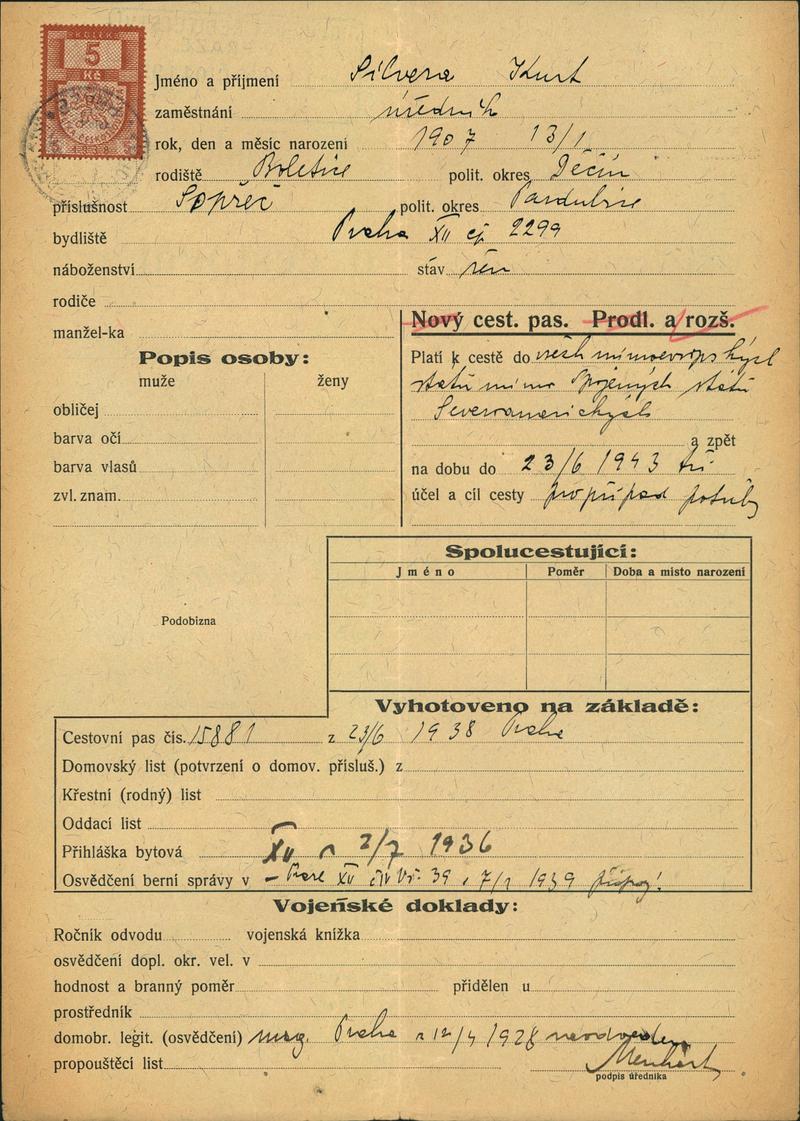 KOLEK
5
Kč
Jméno a příjmení Silvera Kurt
zaměstnání úředník
rok, den a měsíc narození 1907 13/1
rodiště Boletice polit. okres Děčín
příslušnost Sopřeč polit. okres Pardubice
bydliště Praha XII čp 2299
náboženství stav žen
rodiče
manžel-ka
Nový cest. pas. Prodl. a rozš.
Popis osoby:
muže ženy
obličej
barva očí
barva vlasů
zvl. znam.
Platí k cestě do všech mimoevropských
států mimo Spojených států
Severoamerických
a zpět
na dobu do 23/6 1943 tří
účel a cíl cesty pro případ potřeby
Spolucestující:
Jméno Poměr Doba a místo narození
Podobizna
Vyhotoveno na základě:
Cestovní pas čís. 15881 z 23/6 1938 Praha
Domovský list (potvrzení o domov. přísluš.) z
Křestní (rodný) list
Oddací list
Přihláška bytová XII 2/7 1936
Osvědčení berní správy v XV 39 1939
Vojeňské doklady:
Ročník odvodu vojenská knížka
osvědčení dopl. okr. vel. v
hodnost a branný poměr přidělen u
prostředník
domobr. legit. (osvědčení) mag. Praha 12/4 1928 neodveden
propouštěcí list
podpis úředníka